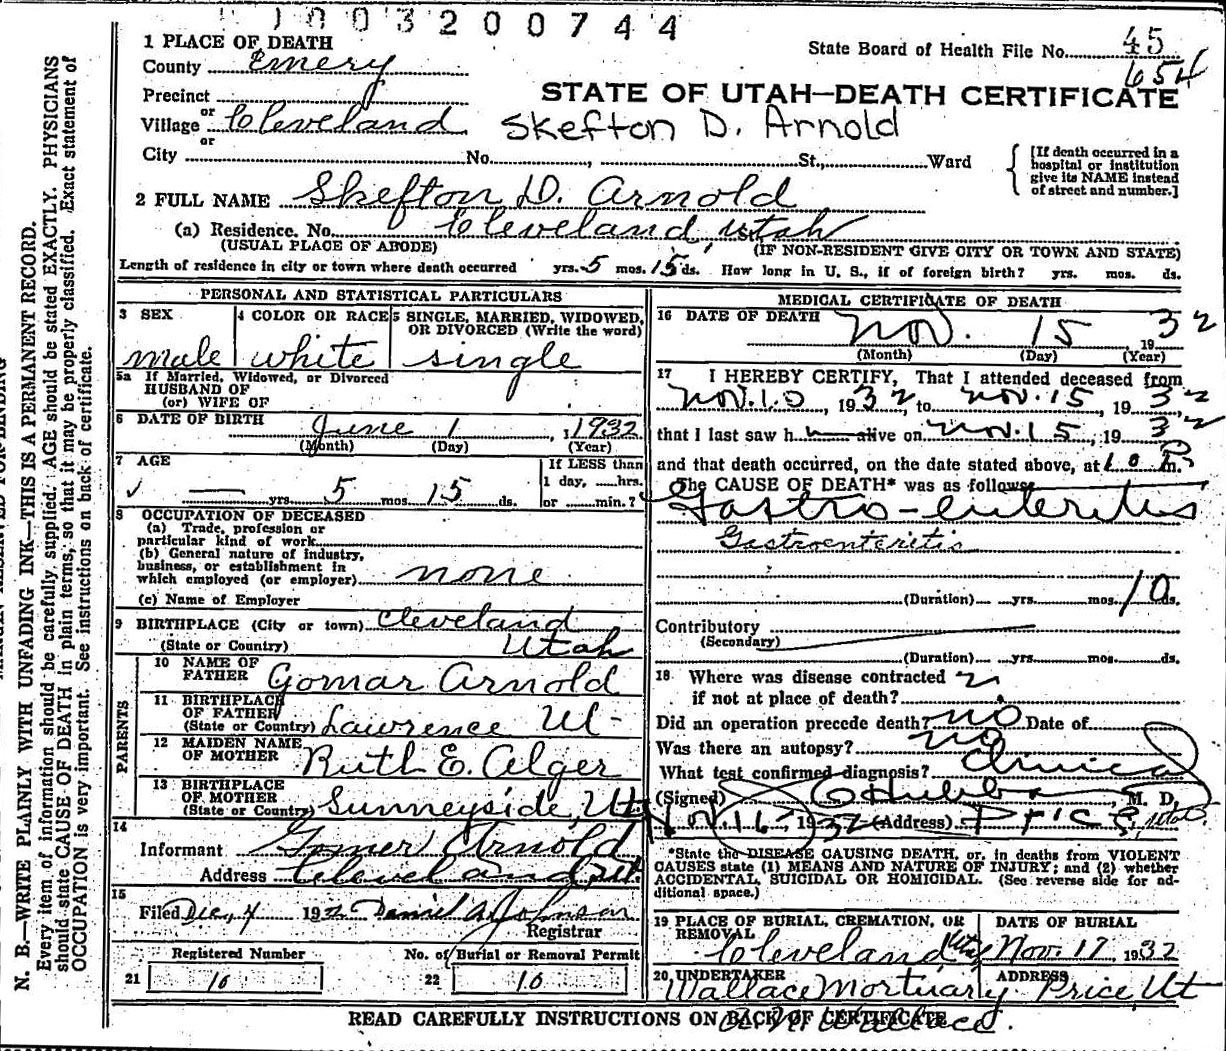 1003200744
1 PLACE OF DEATH
State Board of Health File No. 45
654
County Emery
STATE OF UTAH—DEATH CERTIFICATE
Precinct
or
Village Cleveland
Skefton D. Arnold
or
City No. , St., Ward
[If death occurred in a hospital or institution give its NAME instead of street and number.]
2 FULL NAME Skefton D. Arnold
(a) Residence. No. Cleveland, Utah
(USUAL PLACE OF ABODE) (IF NON-RESIDENT GIVE CITY OR TOWN AND STATE)
Length of residence in city or town where death occurred yrs. 5 mos. 15 ds. How long in U. S., if of foreign birth? yrs. mos. ds.
PERSONAL AND STATISTICAL PARTICULARS
3 SEX
male
4 COLOR OR RACE
white
5 SINGLE, MARRIED, WIDOWED,
OR DIVORCED (Write the word)
single
5a If Married, Widowed, or Divorced
HUSBAND OF
(or) WIFE OF
6 DATE OF BIRTH June 1, 1932
(Month) (Day) (Year)
7 AGE
— yrs. 5 mos. 15 ds.
If LESS than
1 day, hrs.
or min.?
8 OCCUPATION OF DECEASED
(a) Trade, profession or
particular kind of work
(b) General nature of industry,
business, or establishment in
which employed (or employer) none
(c) Name of Employer
9 BIRTHPLACE (City or town) Cleveland
(State or Country) Utah
PARENTS
10 NAME OF
FATHER Gomar Arnold
11 BIRTHPLACE
OF FATHER
(State or Country) Lawrence Ut-
12 MAIDEN NAME
OF MOTHER Ruth E. Alger
13 BIRTHPLACE
OF MOTHER
(State or Country) Sunneyside, Ut
14
Informant Gomer Arnold
Address Cleveland, Ut.
15
Filed Dec. 4 1932 Daniel A. Johnson
Registrar
Registered Number No. of Burial or Removal Permit
21 10 22 10
MEDICAL CERTIFICATE OF DEATH
16 DATE OF DEATH
Nov. 15 1932
(Month) (Day) (Year)
17 I HEREBY CERTIFY, That I attended deceased from
Nov. 10, 1932, to Nov. 15, 1932,
that I last saw h alive on Nov. 15, 1932
and that death occurred, on the date stated above, at 10 P m.
The CAUSE OF DEATH* was as follows:
Gastro-enteritis
Gastroenteritis
(Duration) yrs. mos. 10 ds.
Contributory
(Secondary)
(Duration) yrs. mos. ds.
18 Where was disease contracted
if not at place of death?
Did an operation precede death? no Date of
Was there an autopsy? no
What test confirmed diagnosis? Clinical
(Signed) M. D.
Nov 16, 1932 (Address) Price, Utah
*State the DISEASE CAUSING DEATH, or, in deaths from VIOLENT
CAUSES state (1) MEANS AND NATURE OF INJURY; and (2) whether
ACCIDENTAL, SUICIDAL OR HOMICIDAL. (See reverse side for ad-
ditional space.)
19 PLACE OF BURIAL, CREMATION, OR
REMOVAL
Cleveland City
DATE OF BURIAL
Nov. 17 1932
20 UNDERTAKER
Wallace Mortuary
ADDRESS
Price, Ut
READ CAREFULLY INSTRUCTIONS ON BACK OF CERTIFICATE
N. B.—WRITE PLAINLY WITH UNFADING INK—THIS IS A PERMANENT RECORD.
Every item of information should be carefully supplied. AGE should be stated EXACTLY. PHYSICIANS
should state CAUSE OF DEATH in plain terms, so that it may be properly classified. Exact statement of
OCCUPATION is very important. See instructions on back of certificate.